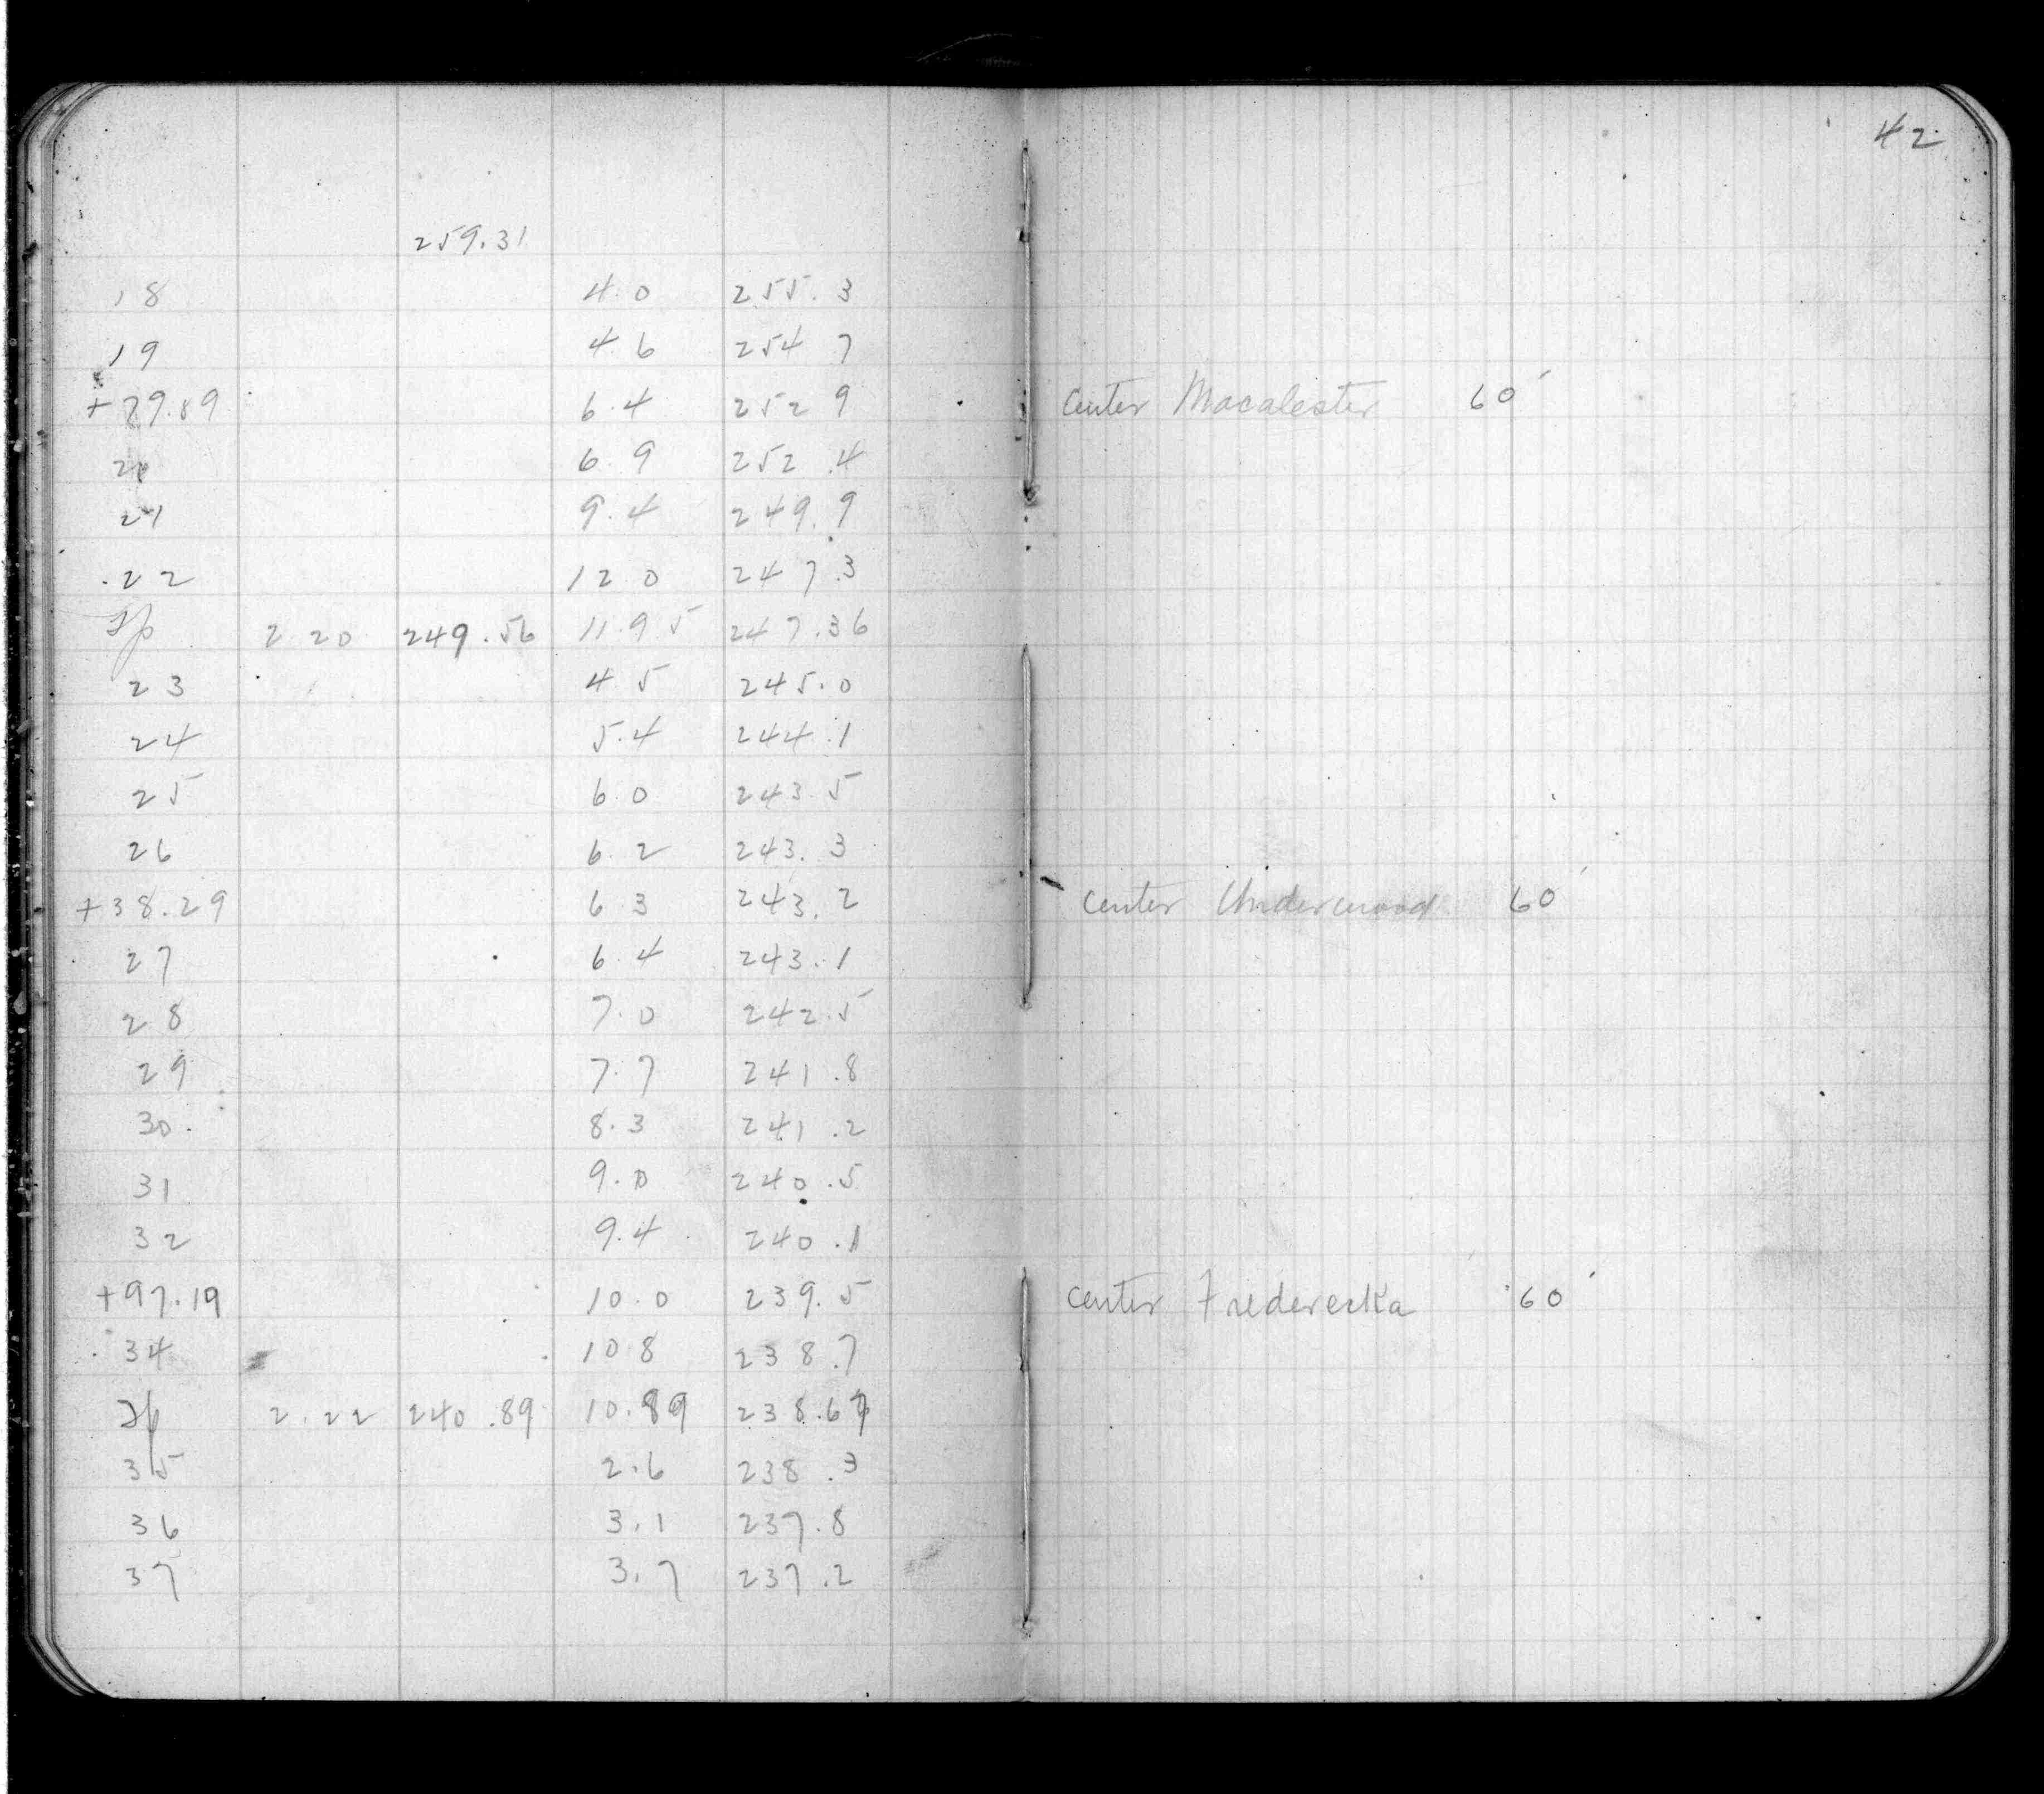 42
259.31
18 4.0 255.3
19 4.6 254.7
+79.89 6.4 252.9 Center Macalester 60'
20 6.9 252.4
21 9.4 249.9
22 12.0 247.3
Tp 2.20 249.56 11.95 247.36
23 4.5 245.0
24 5.4 244.1
25 6.0 243.5
26 6.2 243.3
+38.29 6.3 243.2 Center Underwood 60'
27 6.4 243.1
28 7.0 242.5
29 7.7 241.8
30 8.3 241.2
31 9.0 240.5
32 9.4 240.1
+97.19 10.0 239.5 Center Fredericka 60'
34 10.8 238.7
Tp 2.22 240.89 10.89 238.67
35 2.6 238.3
36 3.1 237.8
37 3.7 237.2